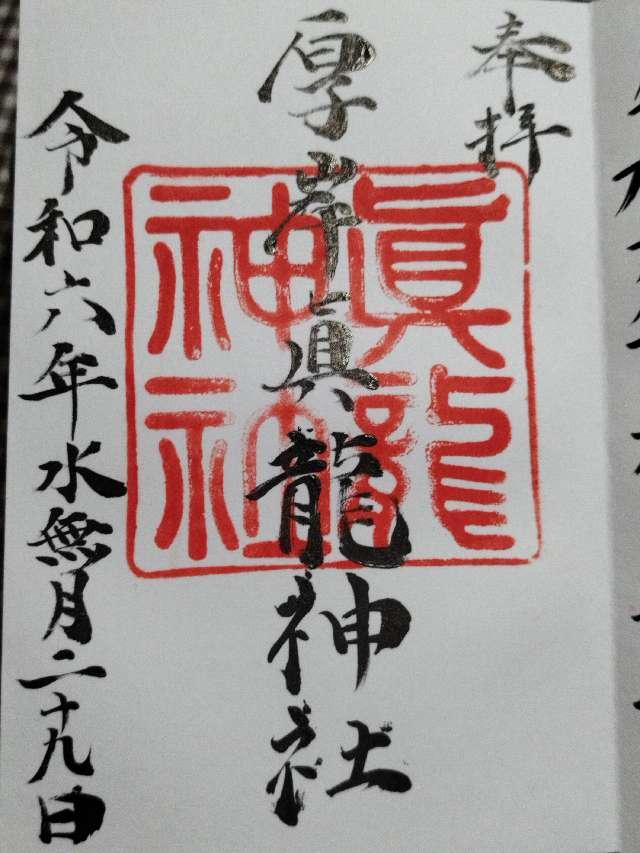 奉拝
厚岸眞龍神社
眞龍
神社
令和六年水無月二十九日